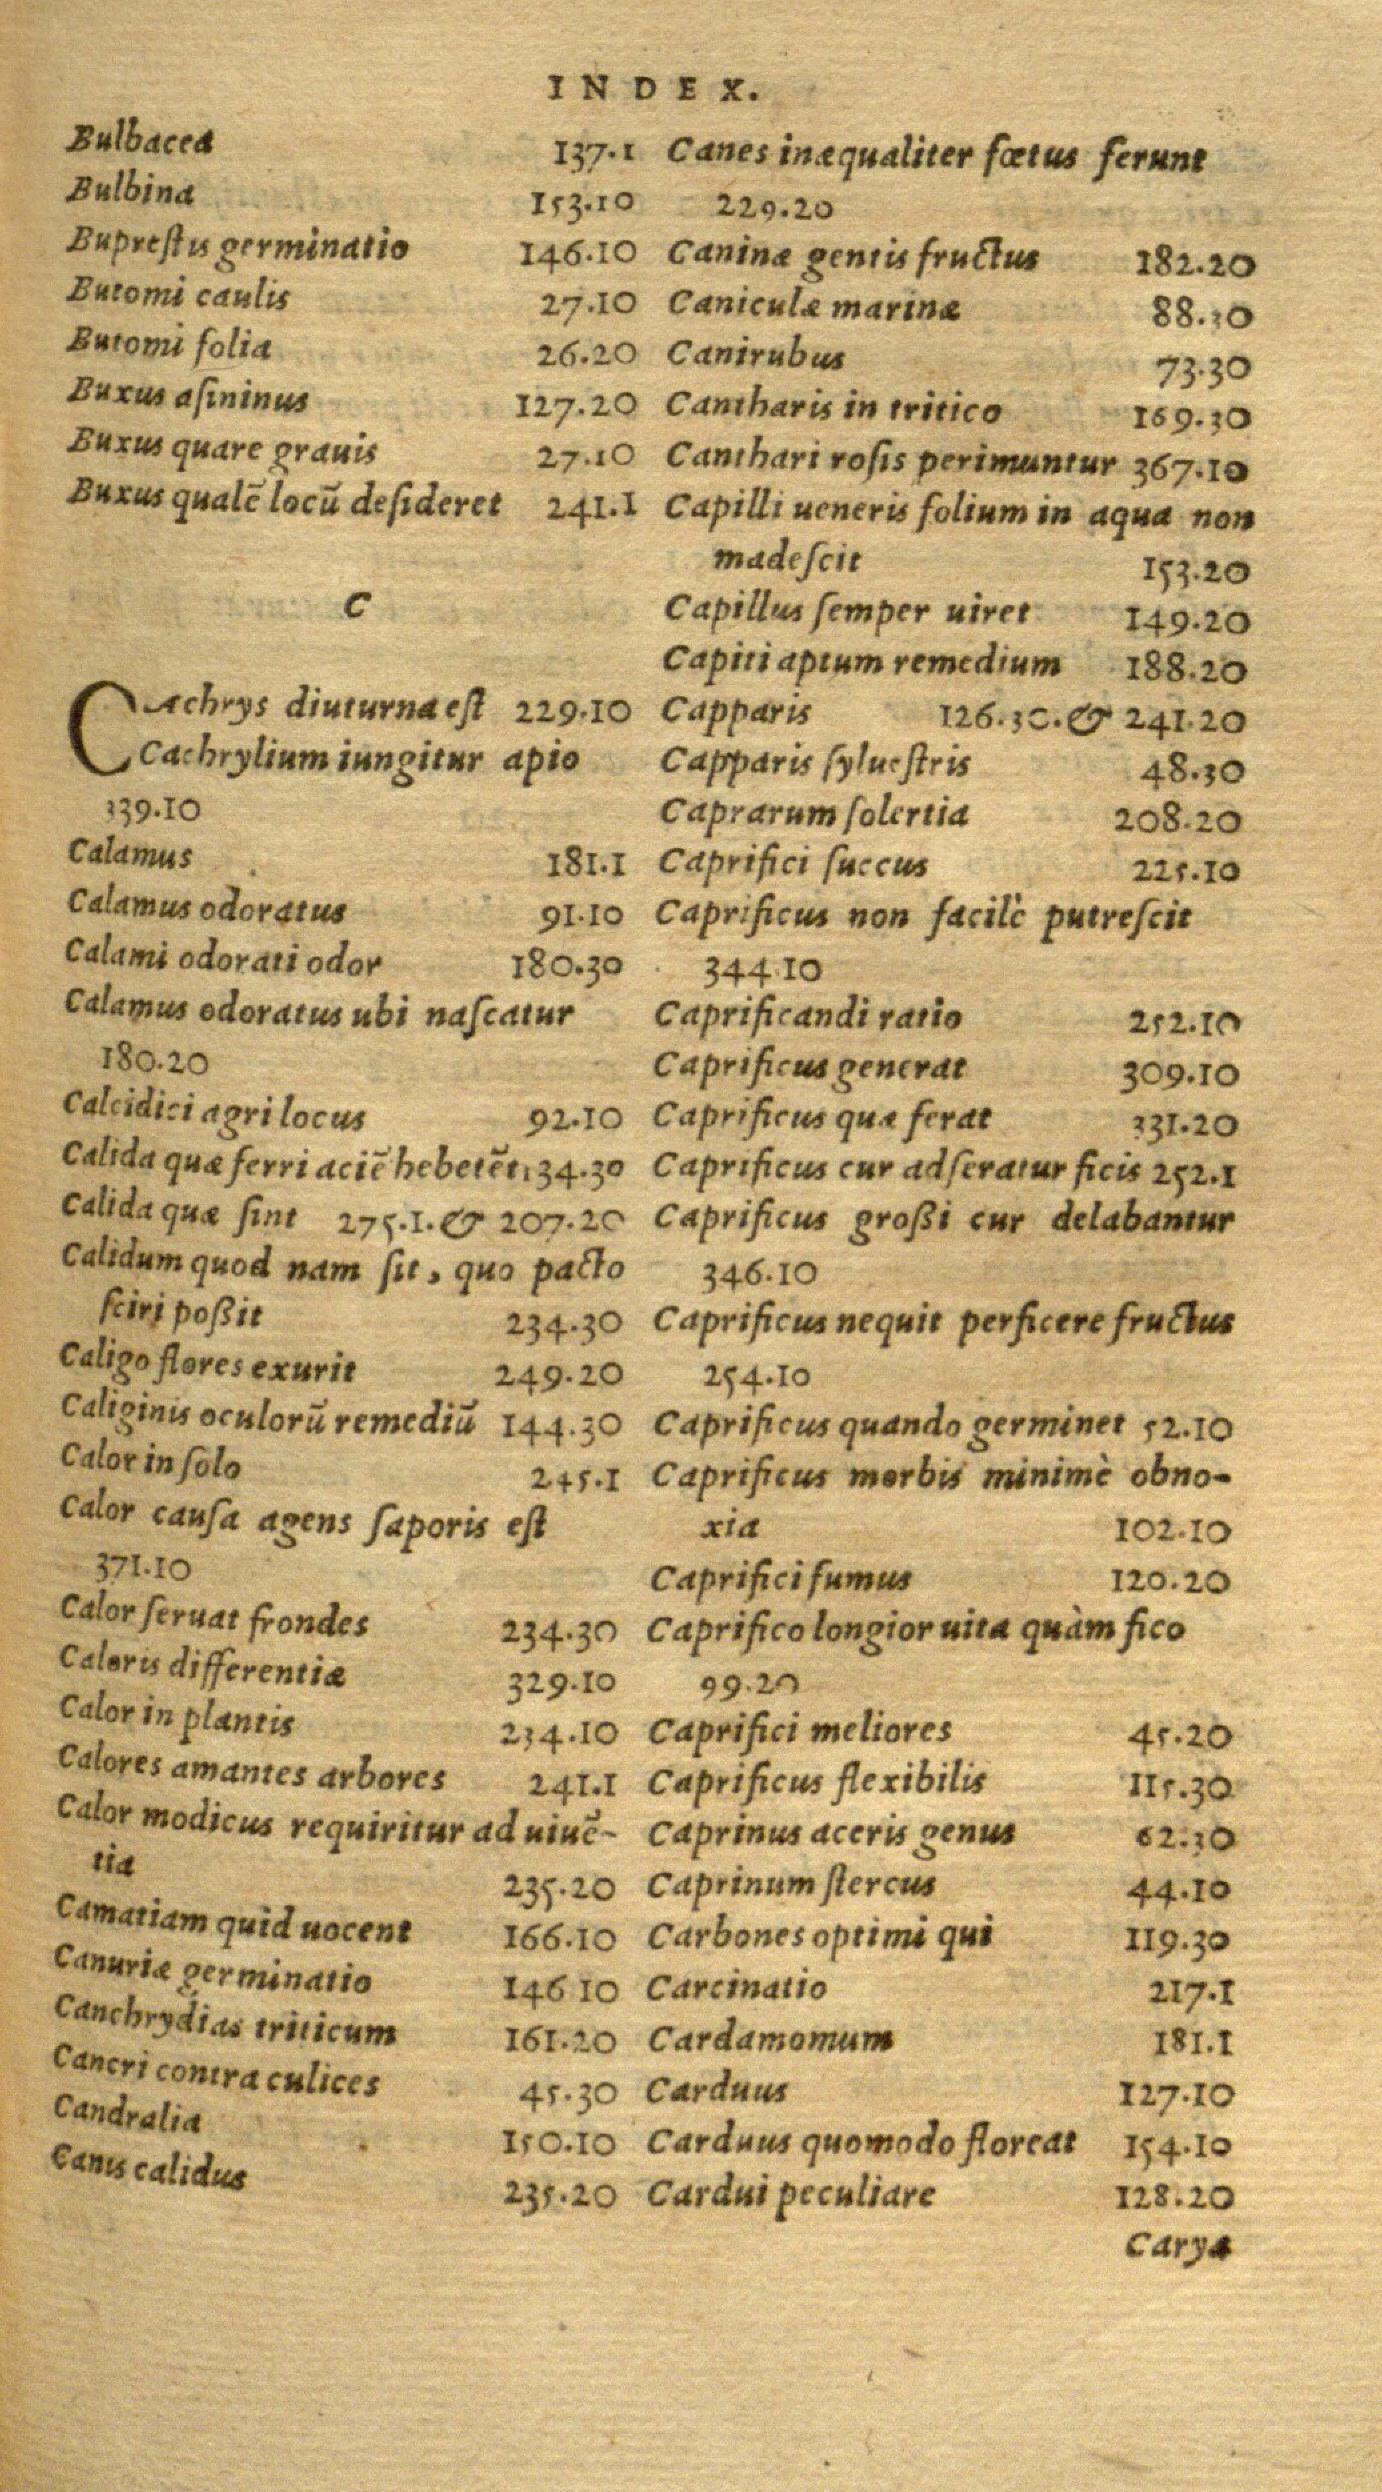 INDEX.
Bulbacea 137.1
Bulbina 153.10
Buprestis germinatio 146.10
Butomi caulis 27.10
Butomi folia 26.20
Buxus asininus 127.20
Buxus quare grauis 27.10
Buxus qualē locū desideret 241.1
C
Cachrys diuturna est 229.10
Cachrylium iungitur apio
339.10
Calamus 181.1
Calamus odoratus 91.10
Calami odorati odor 180.30
Calamus odoratus ubi nascatur
180.20
Calcidici agri locus 92.10
Calida quæ ferri aciē hebetēt 134.30
Calida quæ sint 275.1.& 207.20
Calidum quod nam sit, quo pacto
sciri poßit 234.30
Caligo flores exurit 249.20
Caliginis oculorū remediū 144.30
Calor in solo 245.1
Calor causa agens saporis est
371.10
Calor seruat frondes 234.30
Caloris differentiæ 329.10
Calor in plantis 234.10
Calores amantes arbores 241.1
Calor modicus requiritur ad uiuē-
tia 235.20
Camatiam quid uocent 166.10
Canuriæ germinatio 146 10
Canchrydias triticum 161.20
Cancri contra culices 45.30
Candralia 150.10
Canis calidus 235.20
Canes inæqualiter fœtus ferunt
229.20
Caninæ gentis fructus 182.20
Caniculæ marinæ 88.30
Canirubus 73.30
Cantharis in tritico 169.30
Canthari rosis perimuntur 367.10
Capilli ueneris folium in aqua non
madescit 153.20
Capillus semper uiret 149.20
Capiti aptum remedium 188.20
Capparis 126.30.& 241.20
Capparis syluestris 48.30
Caprarum solertia 208.20
Caprifici succus 225.10
Caprificus non facilè putrescit
344.10
Caprificandi ratio 252.10
Caprificus generat 309.10
Caprificus quæ ferat 331.20
Caprificus cur adseratur ficis 252.1
Caprificus großi cur delabantur
346.10
Caprificus nequit perficere fructus
254.10
Caprificus quando germinet 52.10
Caprificus morbis minimè obno-
xia 102.10
Caprifici fumus 120.20
Caprifico longior uita quàm fico
99.20
Caprifici meliores 45.20
Caprificus flexibilis 115.30
Caprinus aceris genus 62.30
Caprinum stercus 44.10
Carbones optimi qui 119.30
Carcinatio 217.1
Cardamomum 181.1
Carduus 127.10
Carduus quomodo floreat 154.10
Cardui peculiare 128.20
Carya